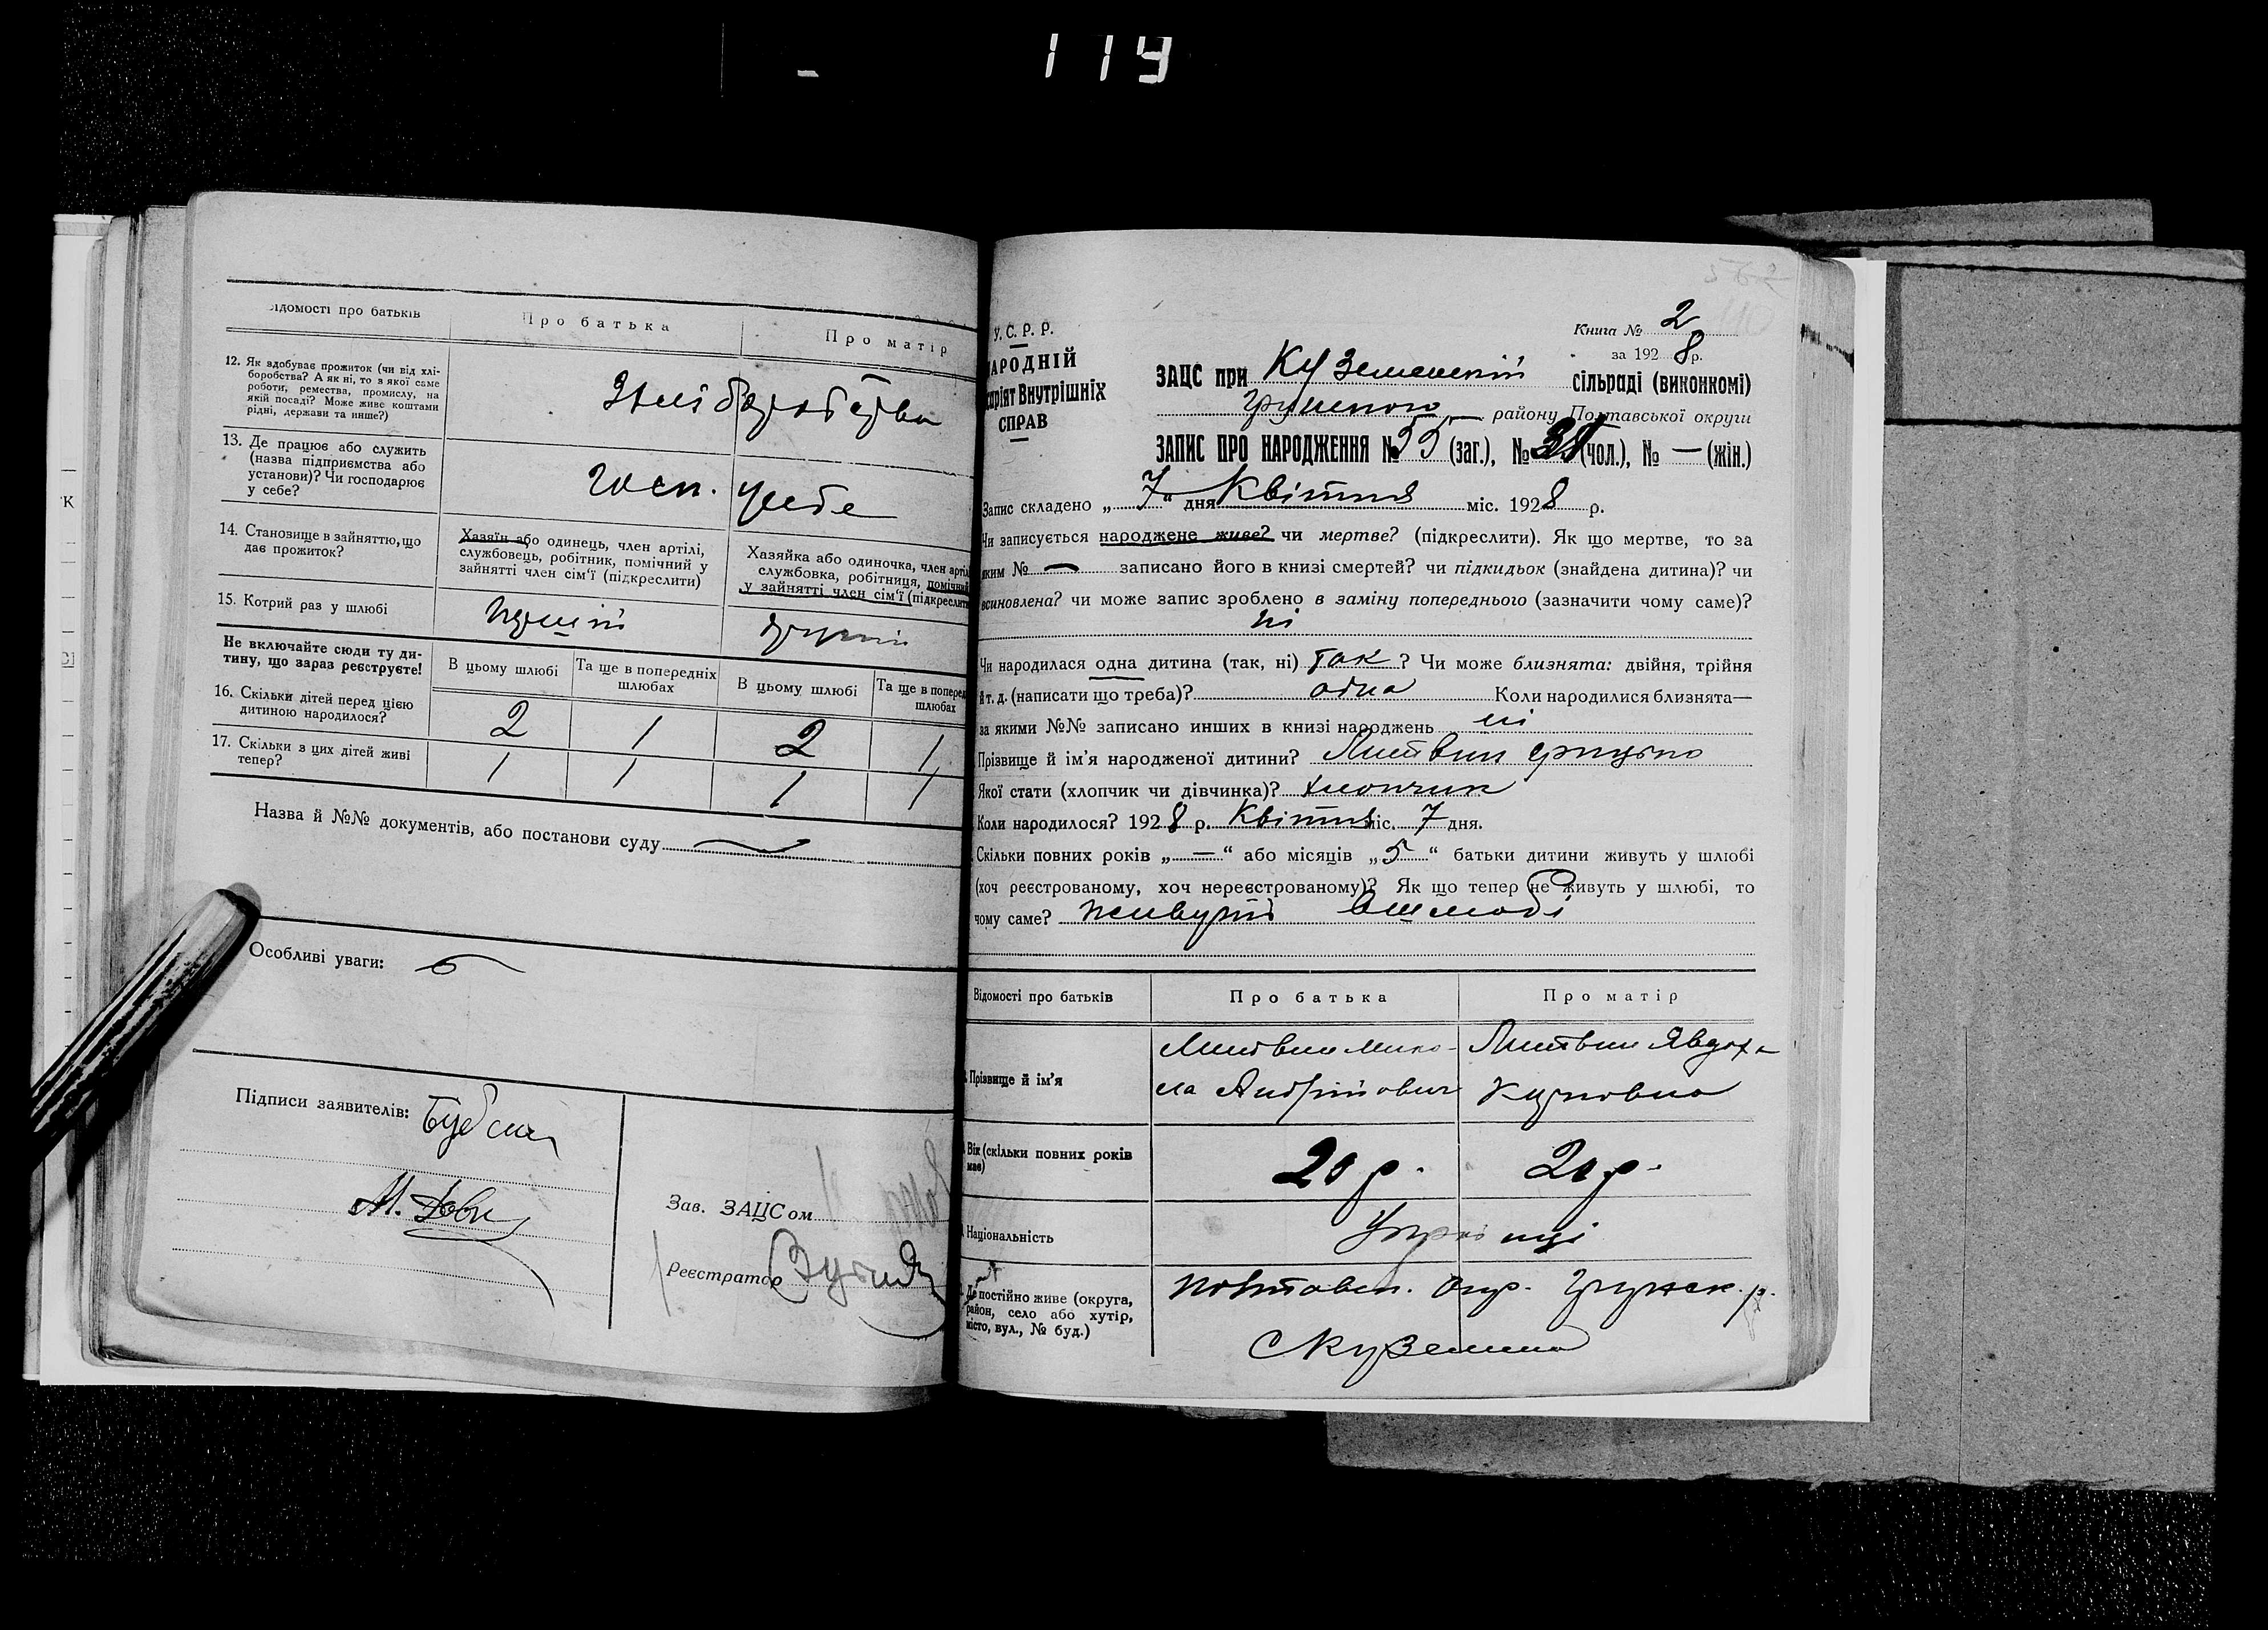 119
Відомості про батьків
Про батька
Про матір
12. Як здобуває прожиток (чи від хлі-
боробства? А як ні, то з якої саме
роботи, ремества, промислу, на
якій посаді? Може живе коштами
рідні, держави та инше?)
З хліборобства
13. Де працює або служить
(назва підприємства або
установи)? Чи господарює
у себе?
госп. у себе
14. Становище в зайняттю, що
дає прожиток?
Хазяїн або одинець, член артілі,
службовець, робітник, помічний у
зайнятті член сім'ї (підкреслити)
Хазяйка або одиночка, член артіл
службовка, робітниця, помічний
у зайнятті член сім'ї (підкреслит
15. Котрий раз у шлюбі
перший
другий
Не включайте сюди ту ди-
тину, що зараз реєструєте!
В цьому шлюбі
Та ще в попередніх
шлюбах
В цьому шлюбі
Та ще в поперед
шлюбах
16. Скільки дітей перед цією
дитиною народилося?
2 1 2 1
17. Скільки з цих дітей живі
тепер?
1 1 1 1
Назва й №№ документів, або постанови суду
Особливі уваги:
Підписи заявителів:
М.
Зав. ЗАЦСом
Реєстратор
У.С.Р.Р.
АРОДНІЙ
аріят Внутрішніх
СПРАВ
Книга № 2
за 1928 р.
ЗАЦС при Куземенській сільраді (виконкомі)
Грунського району Полтавської округи
ЗАПИС ПРО НАРОДЖЕННЯ № 55 (заг.), № 38 (чол.), № — (жін.)
Запис складено „7“ дня Квітня міс. 1928 р.
Чи записується народжене живе? чи мертве? (підкреслити). Як що мертве, то за
яким № — записано його в книзі смертей? чи підкидьок (знайдена дитина)? чи
всиновлена? чи може запис зроблено в заміну попереднього (зазначити чому саме)?
ні
Чи народилася одна дитина (так, ні) так? Чи може близнята: двійня, трійня
й т. д. (написати що треба)? одна Коли народилися близнята—
за якими №№ записано инших в книзі народжень ні
Прізвище й ім'я народженої дитини? Литвин
Якої стати (хлопчик чи дівчинка)? хлопчик
Коли народилося? 1928 р. Квітня міс. 7 дня.
Скільки повних років „—“ або місяців „5“ батьки дитини живуть у шлюбі
(хоч реєстрованому, хоч нереєстрованому)? Як що тепер не живуть у шлюбі, то
чому саме? живуть в шлюбі
Відомості про батьків
Про батька
Про матір
Прізвище й ім'я
Литвин Мико-
ла Андрійович
Литвин Явдоха
Вік (скільки повних років
має)
20 р.
20 р.
Національність
Українці
Де постійно живе (округа,
район, село або хутір,
місто, вул., № буд.)
Полтавськ. Окр. Грунськ. р.
с Куземени